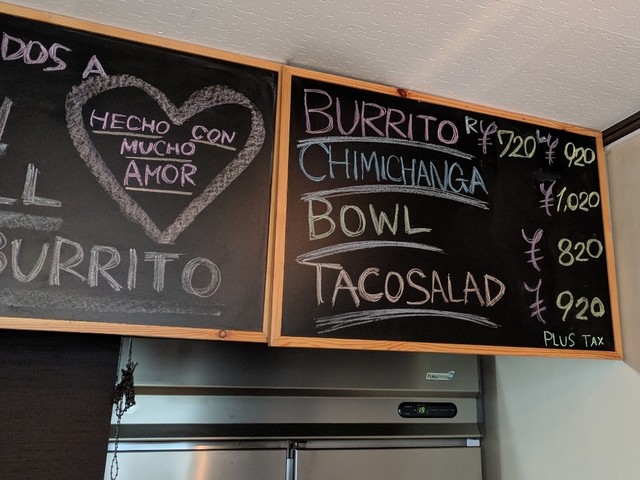 DOS A
HECHO CON
MUCHO
AMOR
BURRITO
BURRITO R ¥720 L ¥920
CHIMICHANGA ¥1,020
BOWL ¥820
TACOSALAD ¥920
PLUS TAX